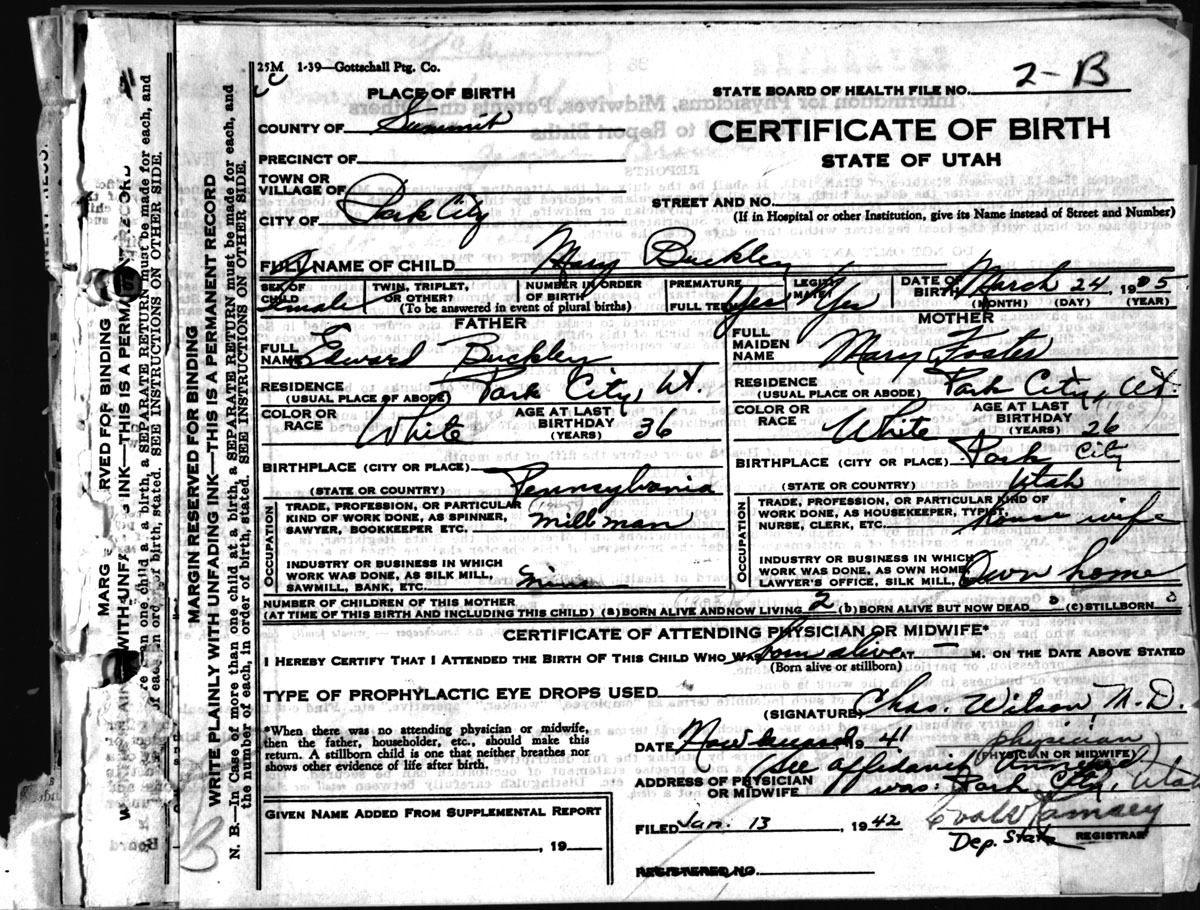 25M 1-39—Gottschall Ptg. Co.
STATE BOARD OF HEALTH FILE NO. 2-B
PLACE OF BIRTH
COUNTY OF Summit
CERTIFICATE OF BIRTH
STATE OF UTAH
PRECINCT OF
TOWN OR
VILLAGE OF
CITY OF Park City
STREET AND NO.
(If in Hospital or other Institution, give its Name instead of Street and Number)
FULL NAME OF CHILD Mary Buckley
SEX OF CHILD Female
TWIN, TRIPLET, OR OTHER?
NUMBER IN ORDER OF BIRTH
(To be answered in event of plural births)
PREMATURE
FULL TERM Yes
LEGITIMATE Yes
DATE OF BIRTH March 24, 1905
(MONTH) (DAY) (YEAR)
FATHER
FULL NAME Edward Buckley
RESIDENCE
(USUAL PLACE OF ABODE) Park City, Ut.
COLOR OR RACE White
AGE AT LAST BIRTHDAY (YEARS) 36
BIRTHPLACE (CITY OR PLACE)
(STATE OR COUNTRY) Pennsylvania
OCCUPATION
TRADE, PROFESSION, OR PARTICULAR
KIND OF WORK DONE, AS SPINNER,
SAWYER, BOOKKEEPER ETC. millman
INDUSTRY OR BUSINESS IN WHICH
WORK WAS DONE, AS SILK MILL,
SAWMILL, BANK, ETC.
MOTHER
FULL MAIDEN NAME Mary Foster
RESIDENCE
(USUAL PLACE OR ABODE) Park City, Ut.
COLOR OR RACE White
AGE AT LAST BIRTHDAY (YEARS) 26
BIRTHPLACE (CITY OR PLACE) Park City
(STATE OR COUNTRY) Utah
OCCUPATION
TRADE, PROFESSION, OR PARTICULAR KIND OF
WORK DONE, AS HOUSEKEEPER, TYPIST,
NURSE, CLERK, ETC. House wife
INDUSTRY OR BUSINESS IN WHICH
WORK WAS DONE, AS OWN HOME,
LAWYER'S OFFICE, SILK MILL, Own home
NUMBER OF CHILDREN OF THIS MOTHER
(AT TIME OF THIS BIRTH AND INCLUDING THIS CHILD) (a) BORN ALIVE AND NOW LIVING 2 (b) BORN ALIVE BUT NOW DEAD 0 (c) STILLBORN 0
CERTIFICATE OF ATTENDING PHYSICIAN OR MIDWIFE*
I HEREBY CERTIFY THAT I ATTENDED THE BIRTH OF THIS CHILD WHO WAS born alive AT — M. ON THE DATE ABOVE STATED
(Born alive or stillborn)
TYPE OF PROPHYLACTIC EYE DROPS USED
(SIGNATURE) Chas. Wilson, M.D.
*When there was no attending physician or midwife,
then the father, householder, etc., should make this
return. A stillborn child is one that neither breathes nor
shows other evidence of life after birth.
DATE 1941 physician
(PHYSICIAN OR MIDWIFE)
(See affidavit
ADDRESS OF PHYSICIAN
OR MIDWIFE was: Park City, Utah
GIVEN NAME ADDED FROM SUPPLEMENTAL REPORT
, 19
FILED Jan. 13, 1942 Ramsey
Dep. State REGISTRAR
REGISTERED NO.
MARGIN RESERVED FOR BINDING
WRITE PLAINLY WITH UNFADING INK—THIS IS A PERMANENT RECORD
N. B.—In Case of more than one child at a birth, a SEPARATE RETURN must be made for each, and
the number of each, in order of birth, stated. SEE INSTRUCTIONS ON OTHER SIDE.
B